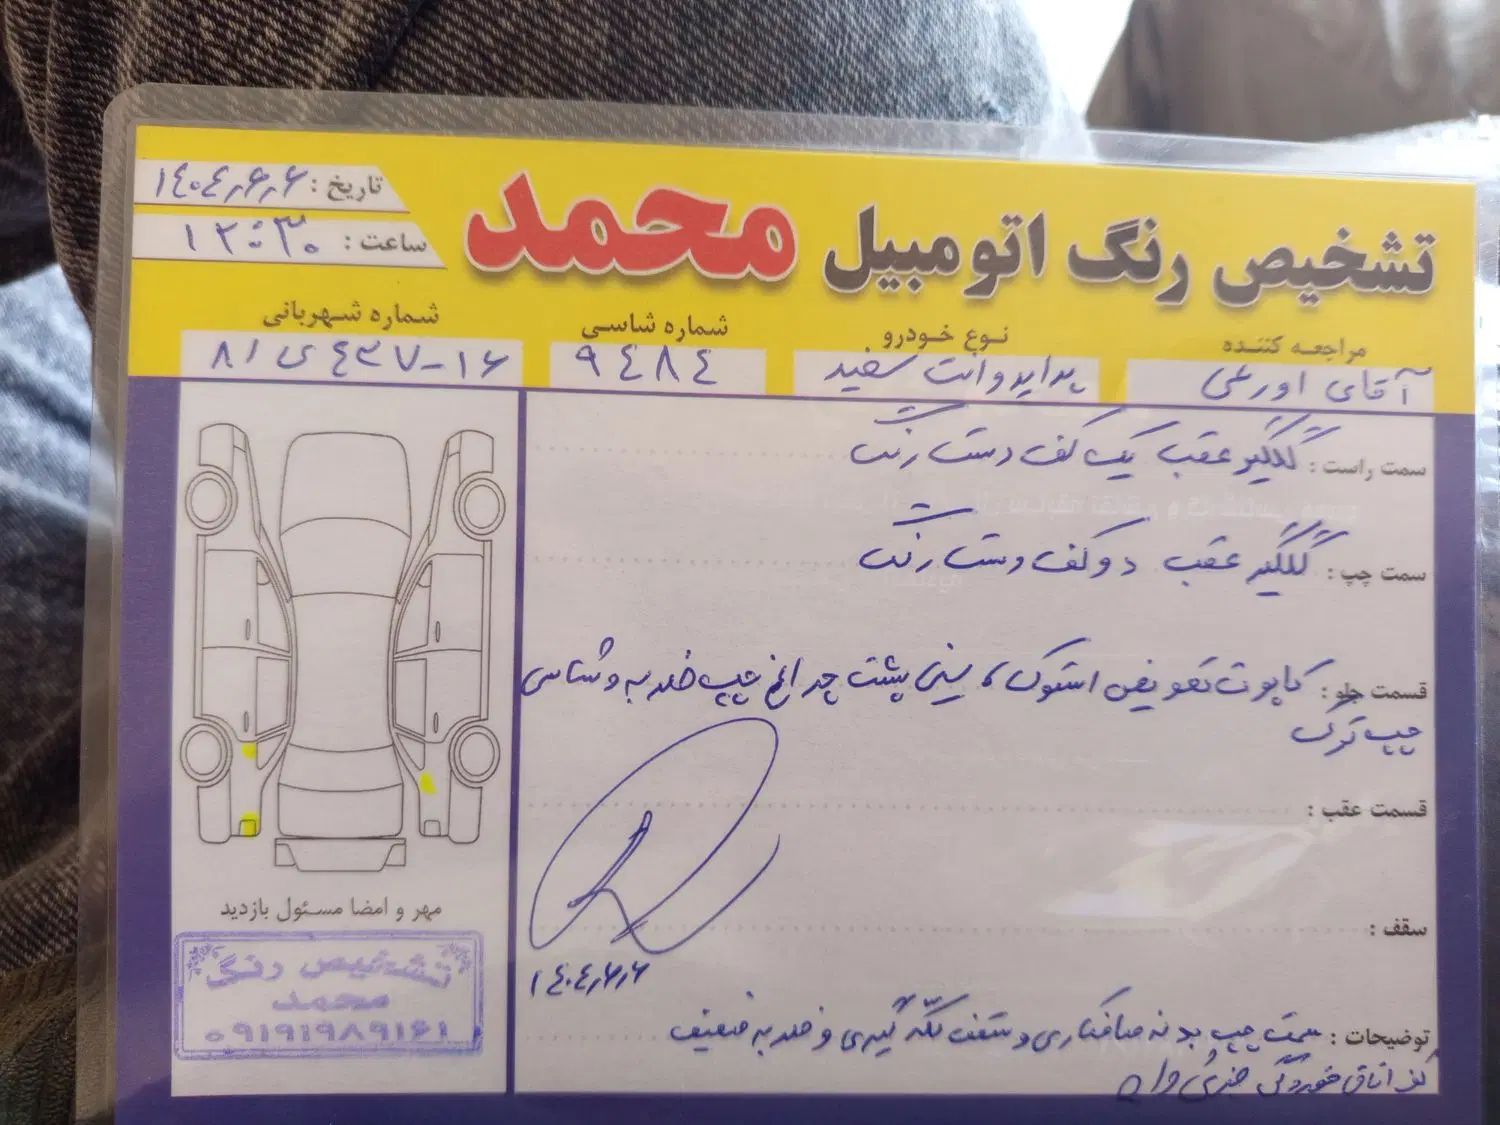 تشخیص رنگ اتومبیل محمد
تاریخ: ۱۴۰۴٫۶٫۶
ساعت: ۱۲:۳۰
مراجعه کننده
آقای اورعی
نوع خودرو
پراید وانت سفید
شماره شاسی
۹۴۸۴
شماره شهربانی
۸۱ی۴۳۷-۱۶
سمت راست: گلگیر عقب یک کف دست رنگ
سمت چپ: گلگیر عقب دو کف دست رنگ
قسمت جلو: کاپوت تعویض استوک، سینی پشت چراغ چپ ضربه و شاسی
چپ ترک
قسمت عقب:
سقف:
۱۴۰۴٫۶٫۶
توضیحات: سمت چپ بدنه صافکاری و سقف لکه گیری و ضربه ضعیف
کف اتاق خوردگی جزئی دارد
مهر و امضا مسئول بازدید
تشخیص رنگ
محمد
۰۹۱۹۱۹۸۹۱۶۱